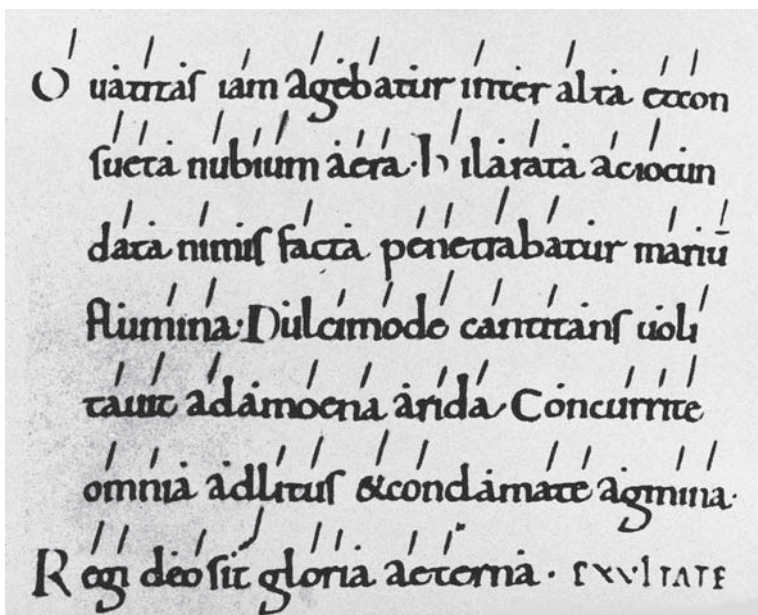 O iam agebatur inter alta etcon
ſueta nubium aera· hilarata aciocun
data nimiſ facta penetrabatur mariū
flumina· Dulcimode cantitanſ uoli
tauit adamoena arida Concurrite
omnia adlituſ &conclamate agmina·
Regi deo ſit gloria aeterna· EXVLTATE